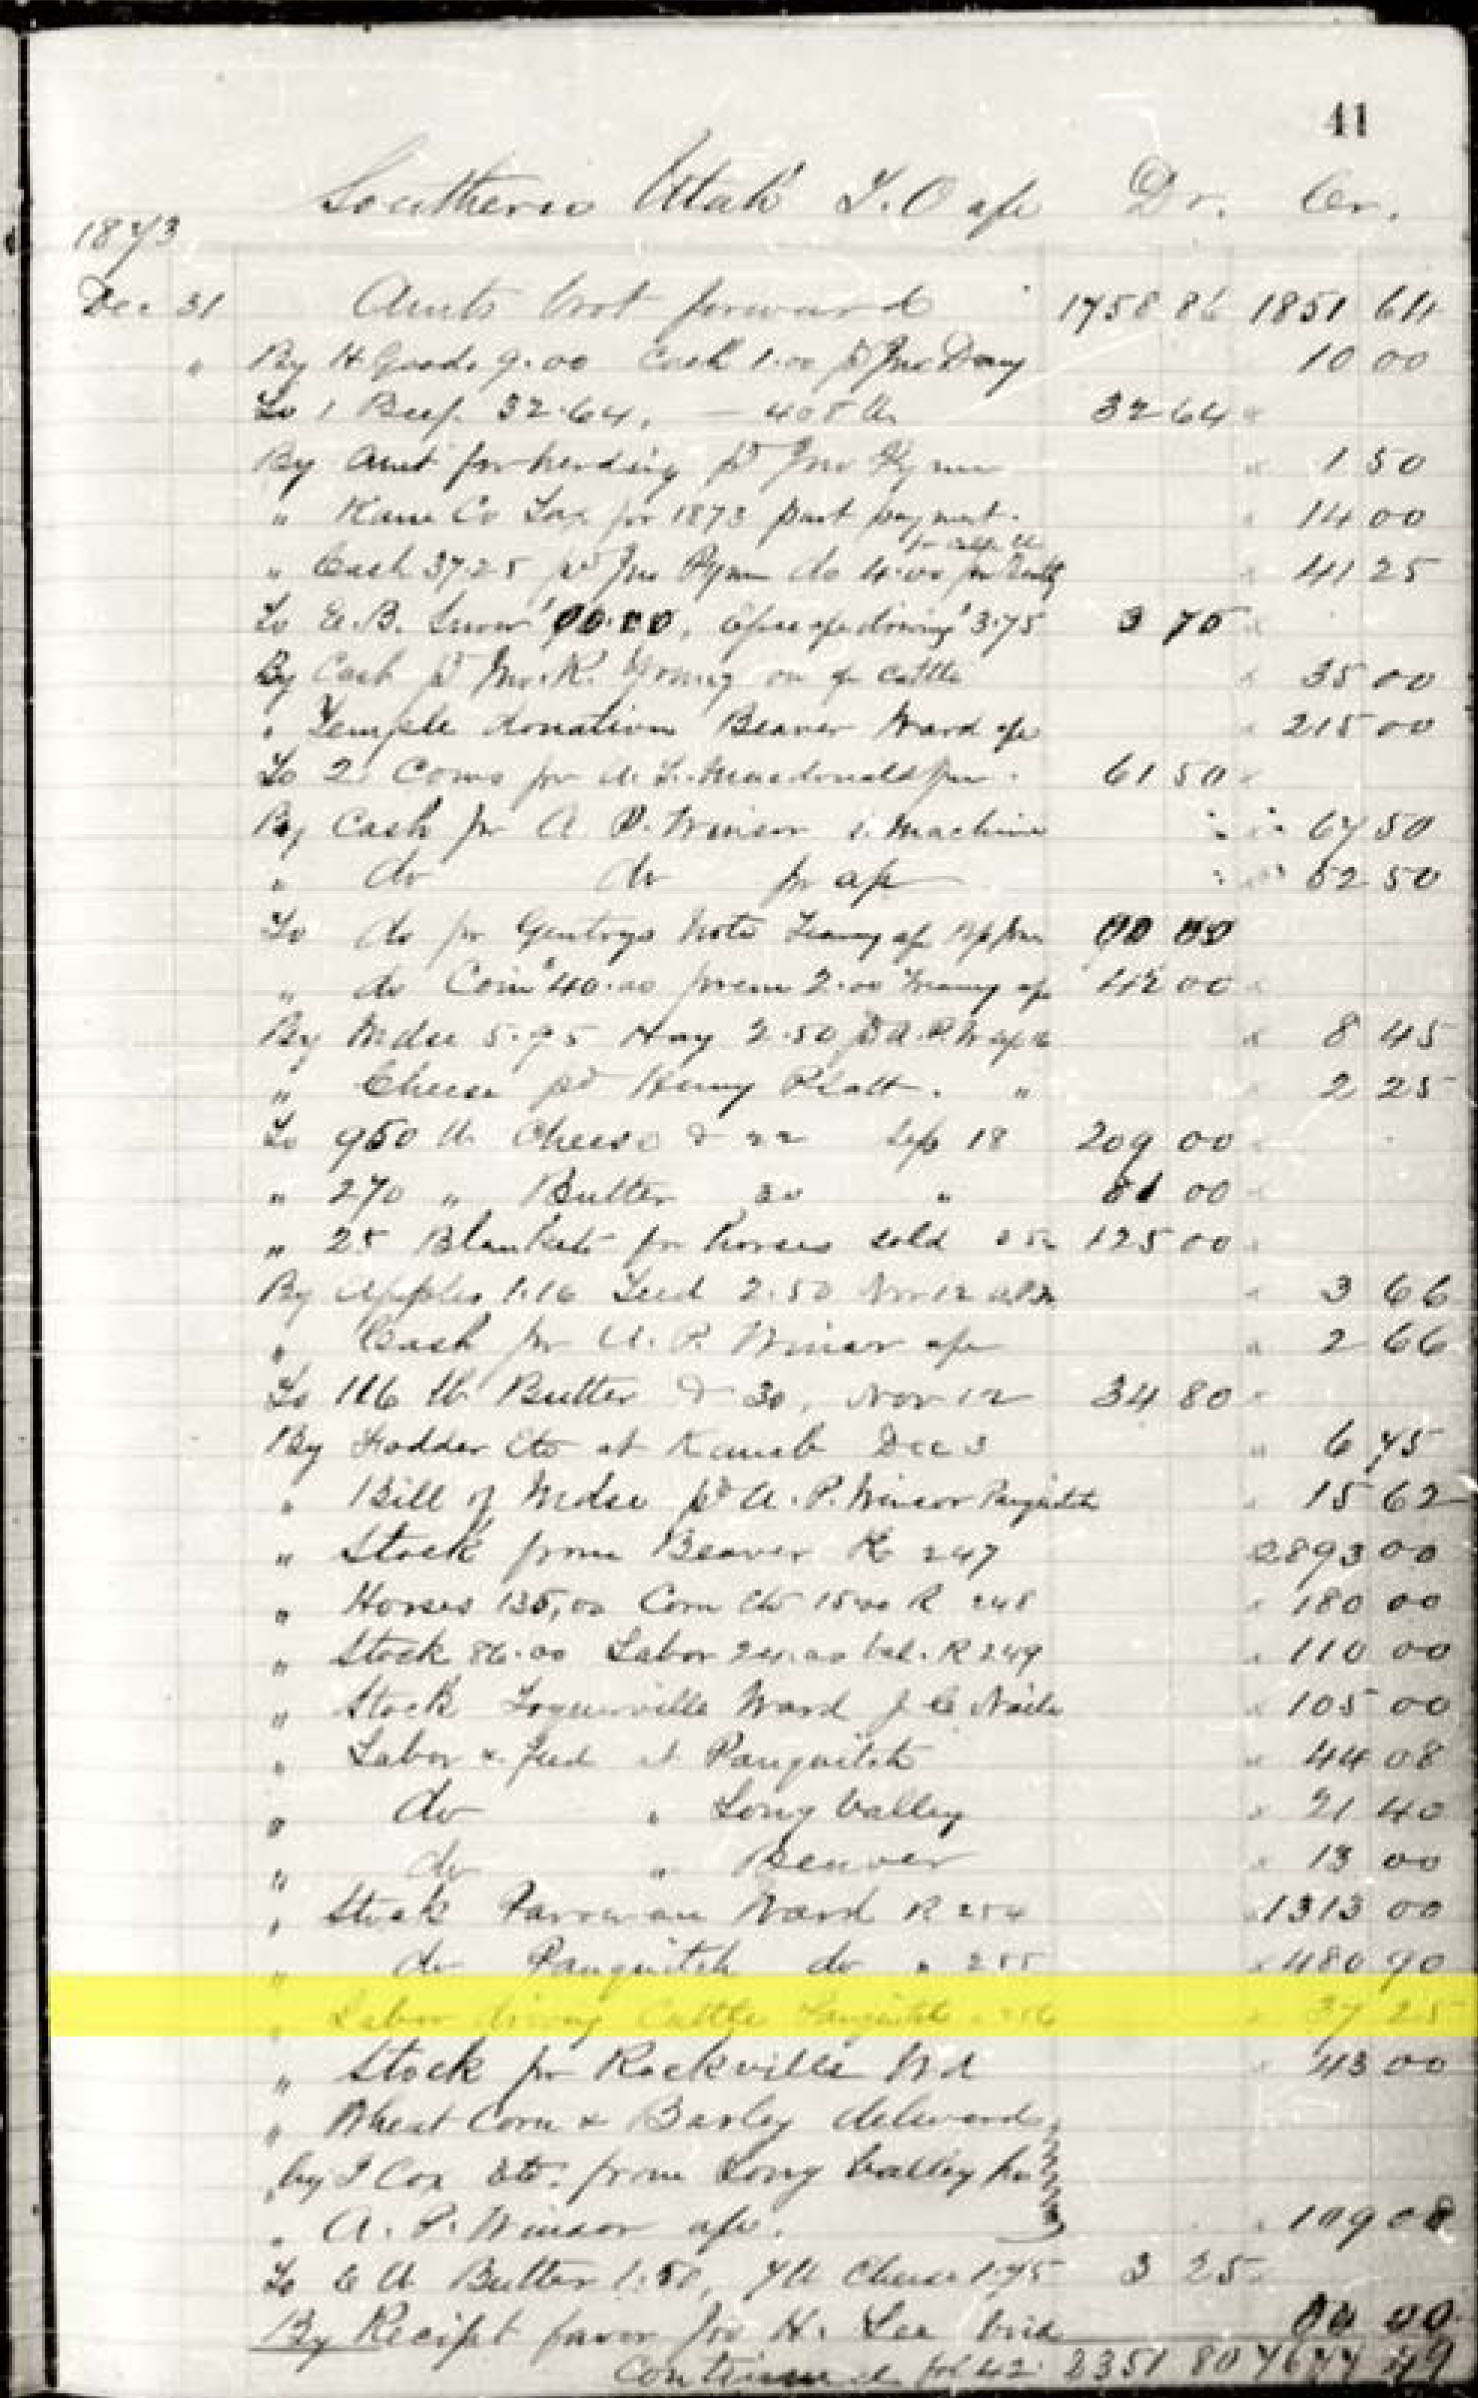 41
Southern Utah T.O a/c Dr. Cr.
1873
Dec. 31 Amts brot forward 1758 86 1851 64
" By H Goods 9.00 Cash 1.00 pd Jno Day 10 00
To 1 Beef 32.64, — 408 lb 32 64
By Amt for herding pd Jno 1 50
" Kane Co Tax for 1873 part payment. 14 00
" Cash 37.25 pd Jno Pymm do 4.00 41 25
To E.B. Snow 00.00, driving 3.75 3 75
By Cash pd Jno. R. Young on a/c cattle 35 00
" Temple donation Beaver Ward a/c 215 00
To 2 Cows for A. F. Macdonald 61 50
By Cash pr A. P. Winsor 1 Machine 67 50
" do do pr a/c 52 50
To do pr Gentrys Note 00 00
" do Coin 40.00 prem 2.00 a/c 42 00
By Mdse 5.95 Hay 2.50 pd A.P.W a/c 8 45
" Cheese pd Henry Platt. " 2 25
To 950 lb Cheese @ 22 Sep 18 209 00
" 270 " Butter 30 " 81 00
" 25 Blankets for horses sold 125 00
By Apples 1.16 Feed 2.50 Nov 12 3 66
" Cash pr A. P. Winsor a/c 2 66
To 116 lb Butter @ 30, Nov 12 34 80
By Fodder Etc at Kanab Dec 3 6 75
" Bill of Mdse pd A. P. Winsor Panguitch 15 62
" Stock from Beaver R 247 2893 00
" Horses 135,00 Corn Etc 15.00 R 248 180 00
" Stock 86.00 Labor 24.00 bal. R 249 110 00
" Stock Toquerville Ward J C Naile 105 00
" Labor & feed at Panguitch 44 08
" do " Long Valley 21 40
" do " Beaver 13 00
" Stock Parowan Ward R 254 1313 00
" do Panguitch do " 255 480 90
" Labor driving Cattle Panguitch " 256 37 25
" Stock pr Rockville Wd 43 00
" Wheat Corn & Barley delivered
by I Cox Etc. from Long Valley
" A. P. Winsor a/c. 109 08
To 6 lb Butter 1.50, 7 lb Cheese 1.75 3 25
By Receipt favor Jno H. Lee 00 00
Continued fol 42 2351 80